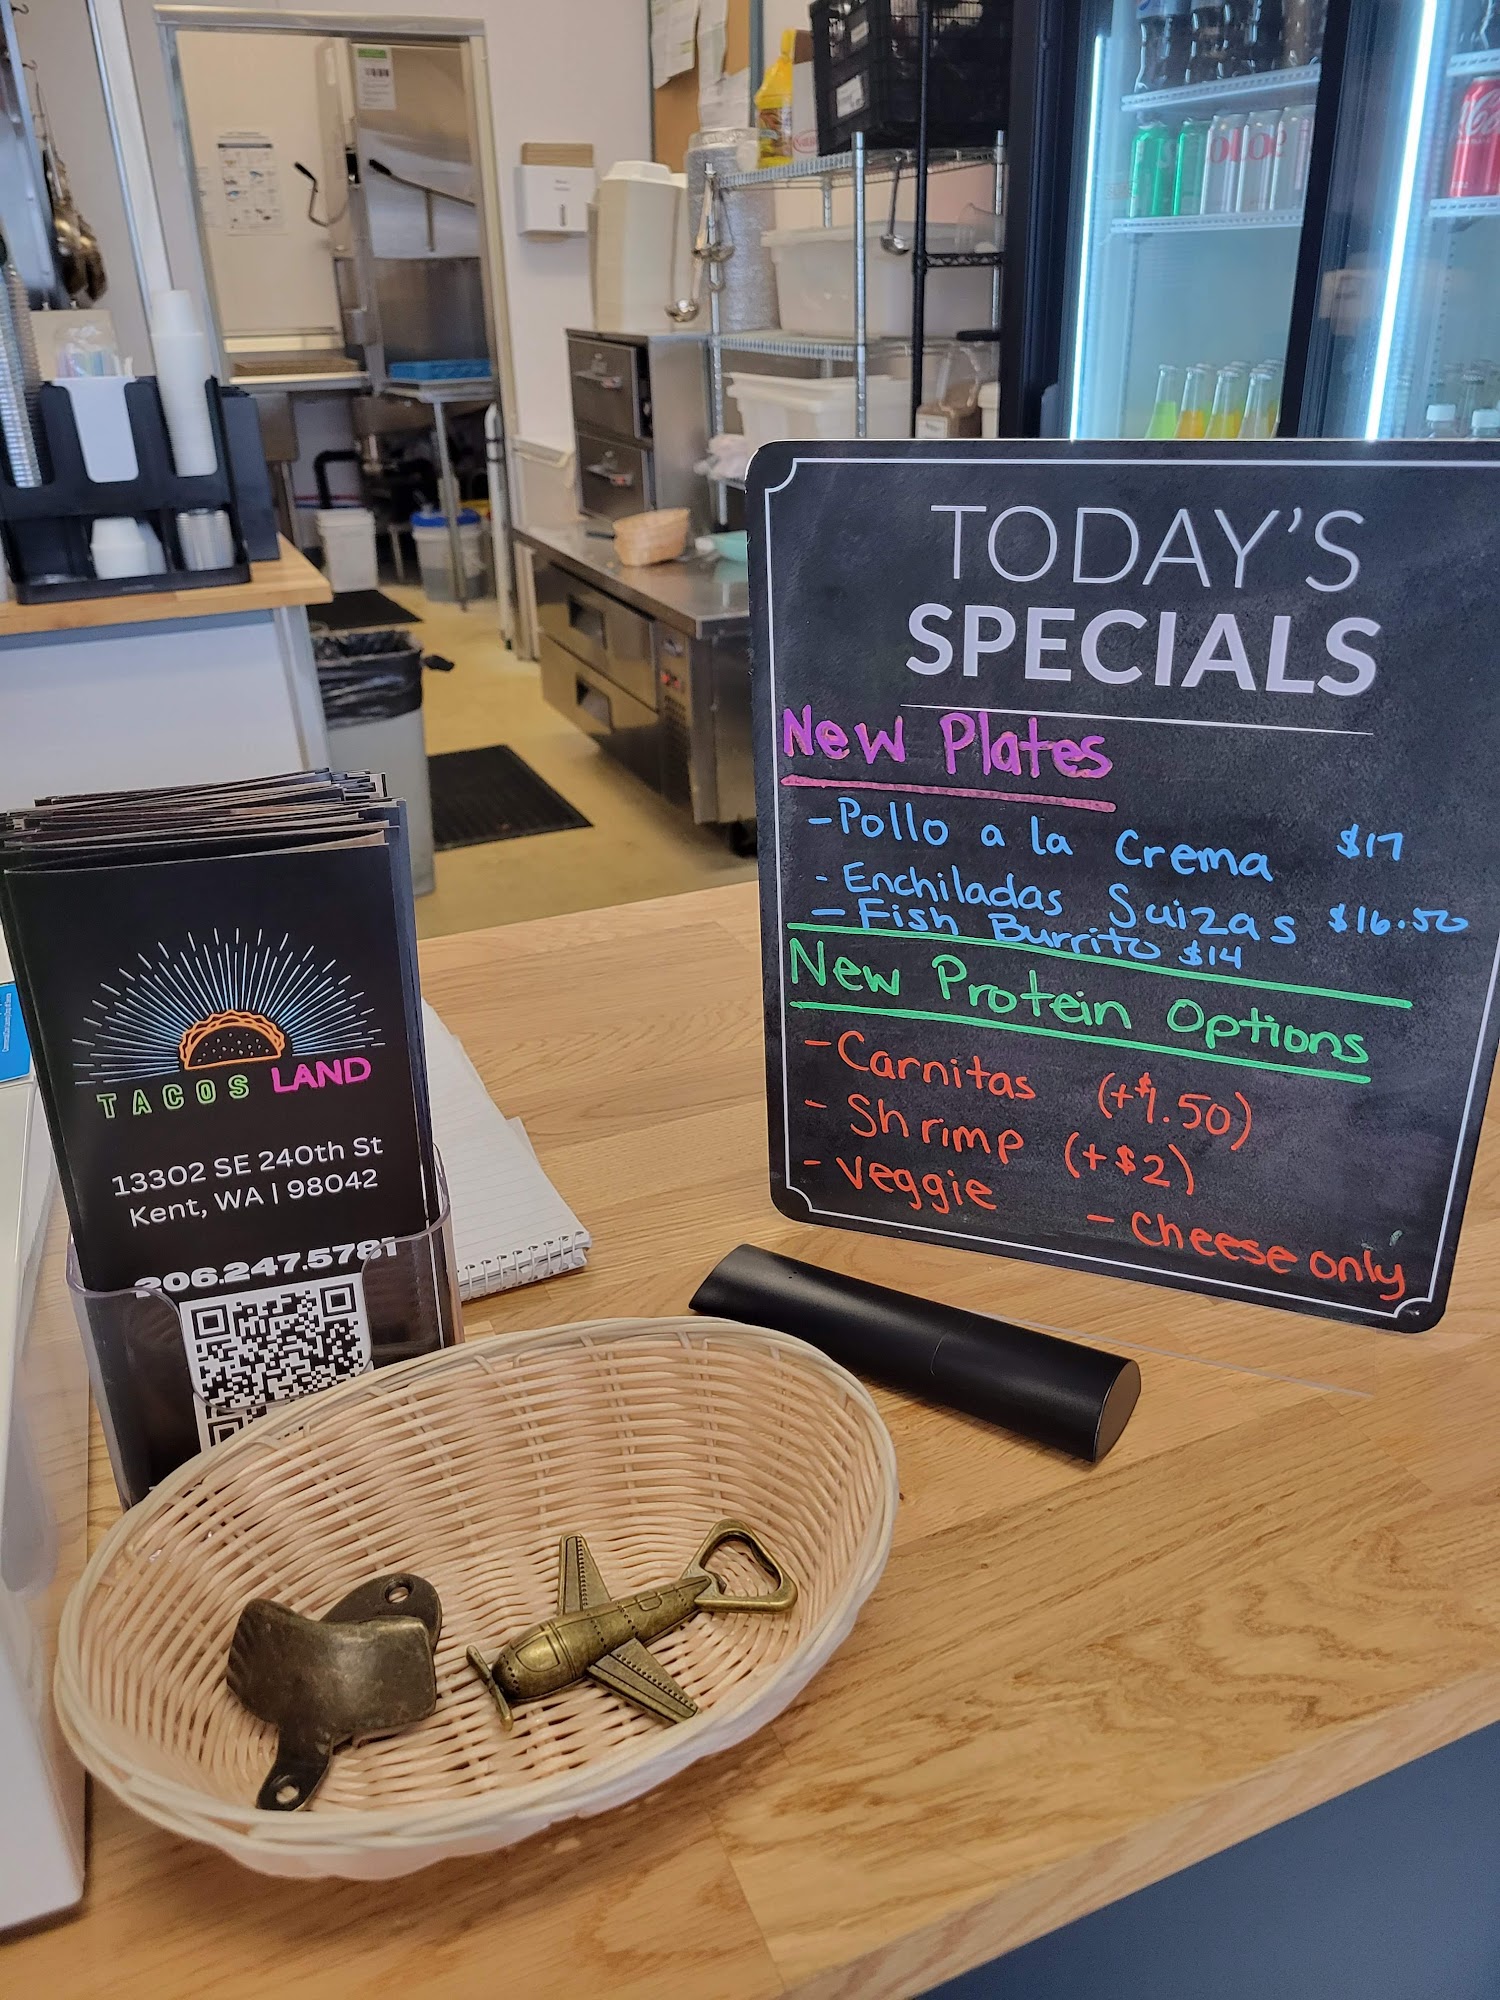 TODAY'S
SPECIALS
New Plates
- Pollo a la Crema $17
- Enchiladas Suizas $16.50
- Fish Burrito $14
New Protein Options
- Carnitas (+$1.50)
- Shrimp (+$2)
- veggie - cheese only
TACOS LAND
13302 SE 240th St
Kent, WA | 98042
206.247.5781